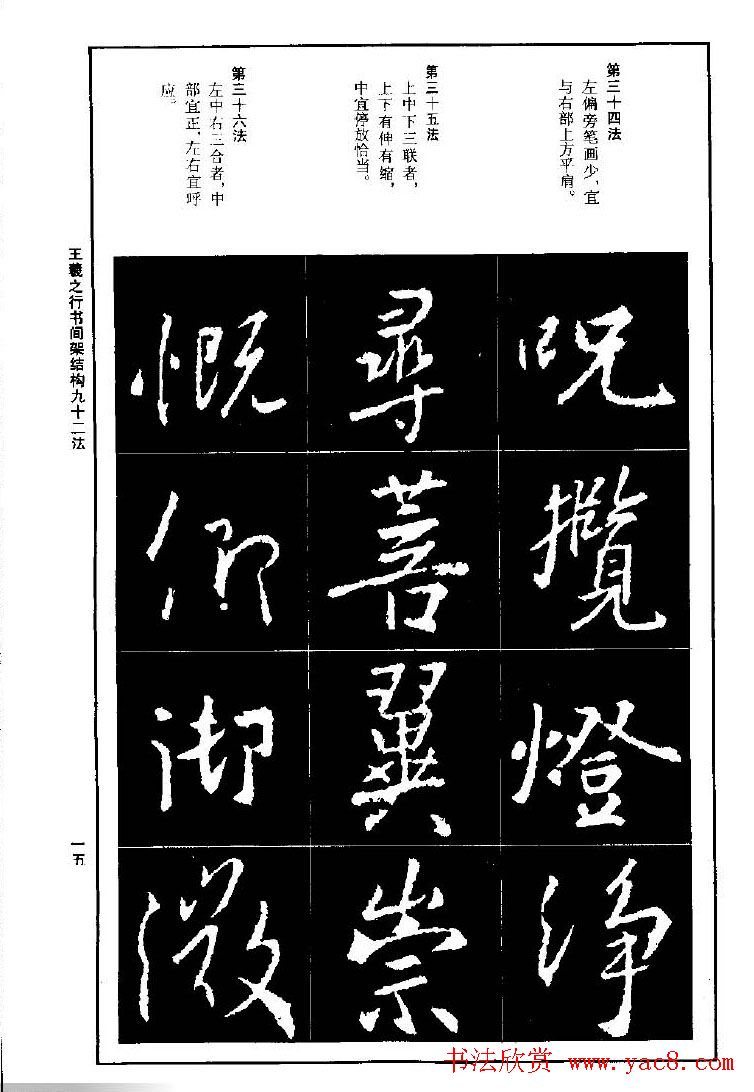 第三十四法
左偏旁笔画少，宜
与右部上方平肩。
第三十五法
上中下三联者，
上下有伸有缩，
中宜停放恰当。
第三十六法
左中右三合者，中
部宜正，左右宜呼
应。
呪
攬
燈
净
尋
菩
翼
崇
慨
卿
御
微
王羲之行书间架结构九十二法
一五
书法欣赏 www.yac8.com